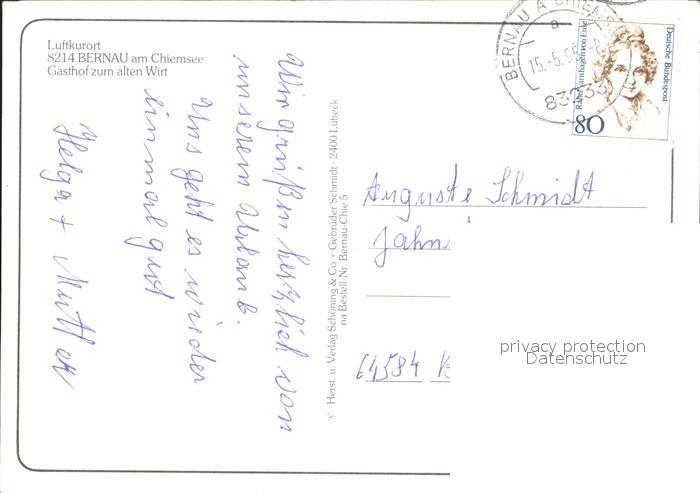 Luftkurort
8214 BERNAU am Chiemsee
Gasthof zum alten Wirt
Wir grüßen herzlich von
unserem Urlaub.
Uns geht es wieder
einmal gut
Helga + Mutter
© Herst. u. Verlag Schöning & Co + Gebrüder Schmidt · 2400 Lübeck
na Bestell-Nr. Bernau-Chie 5
BERNAU A CHIEM
a
15.-5.
83233
Deutsche Bundespost
Rahel Varnhagen von Ense
80
Auguste Schmidt
Jahn
64584
privacy protection
Datenschutz